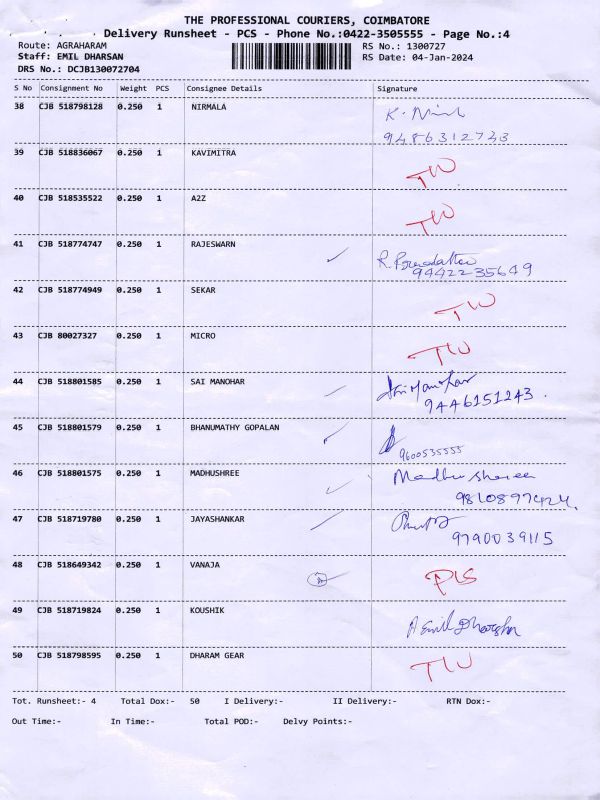 THE PROFESSIONAL COURIERS, COIMBATORE
Delivery Runsheet - PCS - Phone No.:0422-3505555 - Page No.:4
Route: AGRAHARAM RS No.: 1300727
Staff: EMIL DHARSAN RS Date: 04-Jan-2024
DRS No.: DCJB130072704
S No Consignment No Weight PCS Consignee Details Signature
38 CJB 518798128 0.250 1 NIRMALA
9486312743
39 CJB 518836067 0.250 1 KAVIMITRA TW
40 CJB 518535522 0.250 1 A2Z TW
41 CJB 518774747 0.250 1 RAJESWARN
9442235649
42 CJB 518774949 0.250 1 SEKAR TW
43 CJB 80027327 0.250 1 MICRO TW
44 CJB 518801585 0.250 1 SAI MANOHAR
9446151243.
45 CJB 518801579 0.250 1 BHANUMATHY GOPALAN
9600535555
46 CJB 518801575 0.250 1 MADHUSHREE Madhushree
47 CJB 518719780 0.250 1 JAYASHANKAR
9790039115
48 CJB 518649342 0.250 1 VANAJA PLS
49 CJB 518719824 0.250 1 KOUSHIK
50 CJB 518798595 0.250 1 DHARAM GEAR TW
Tot. Runsheet:- 4 Total Dox:- 50 I Delivery:- II Delivery:- RTN Dox:-
Out Time:- In Time:- Total POD:- Delvy Points:-